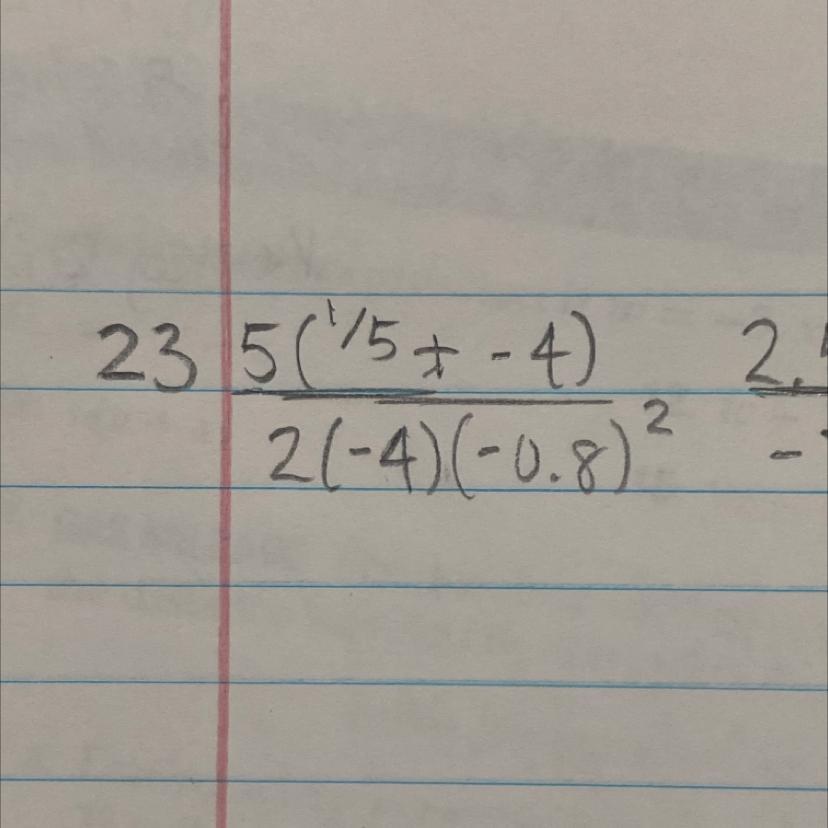 23 5(1/5 + -4) 2.
2(-4)(-0.8)² -